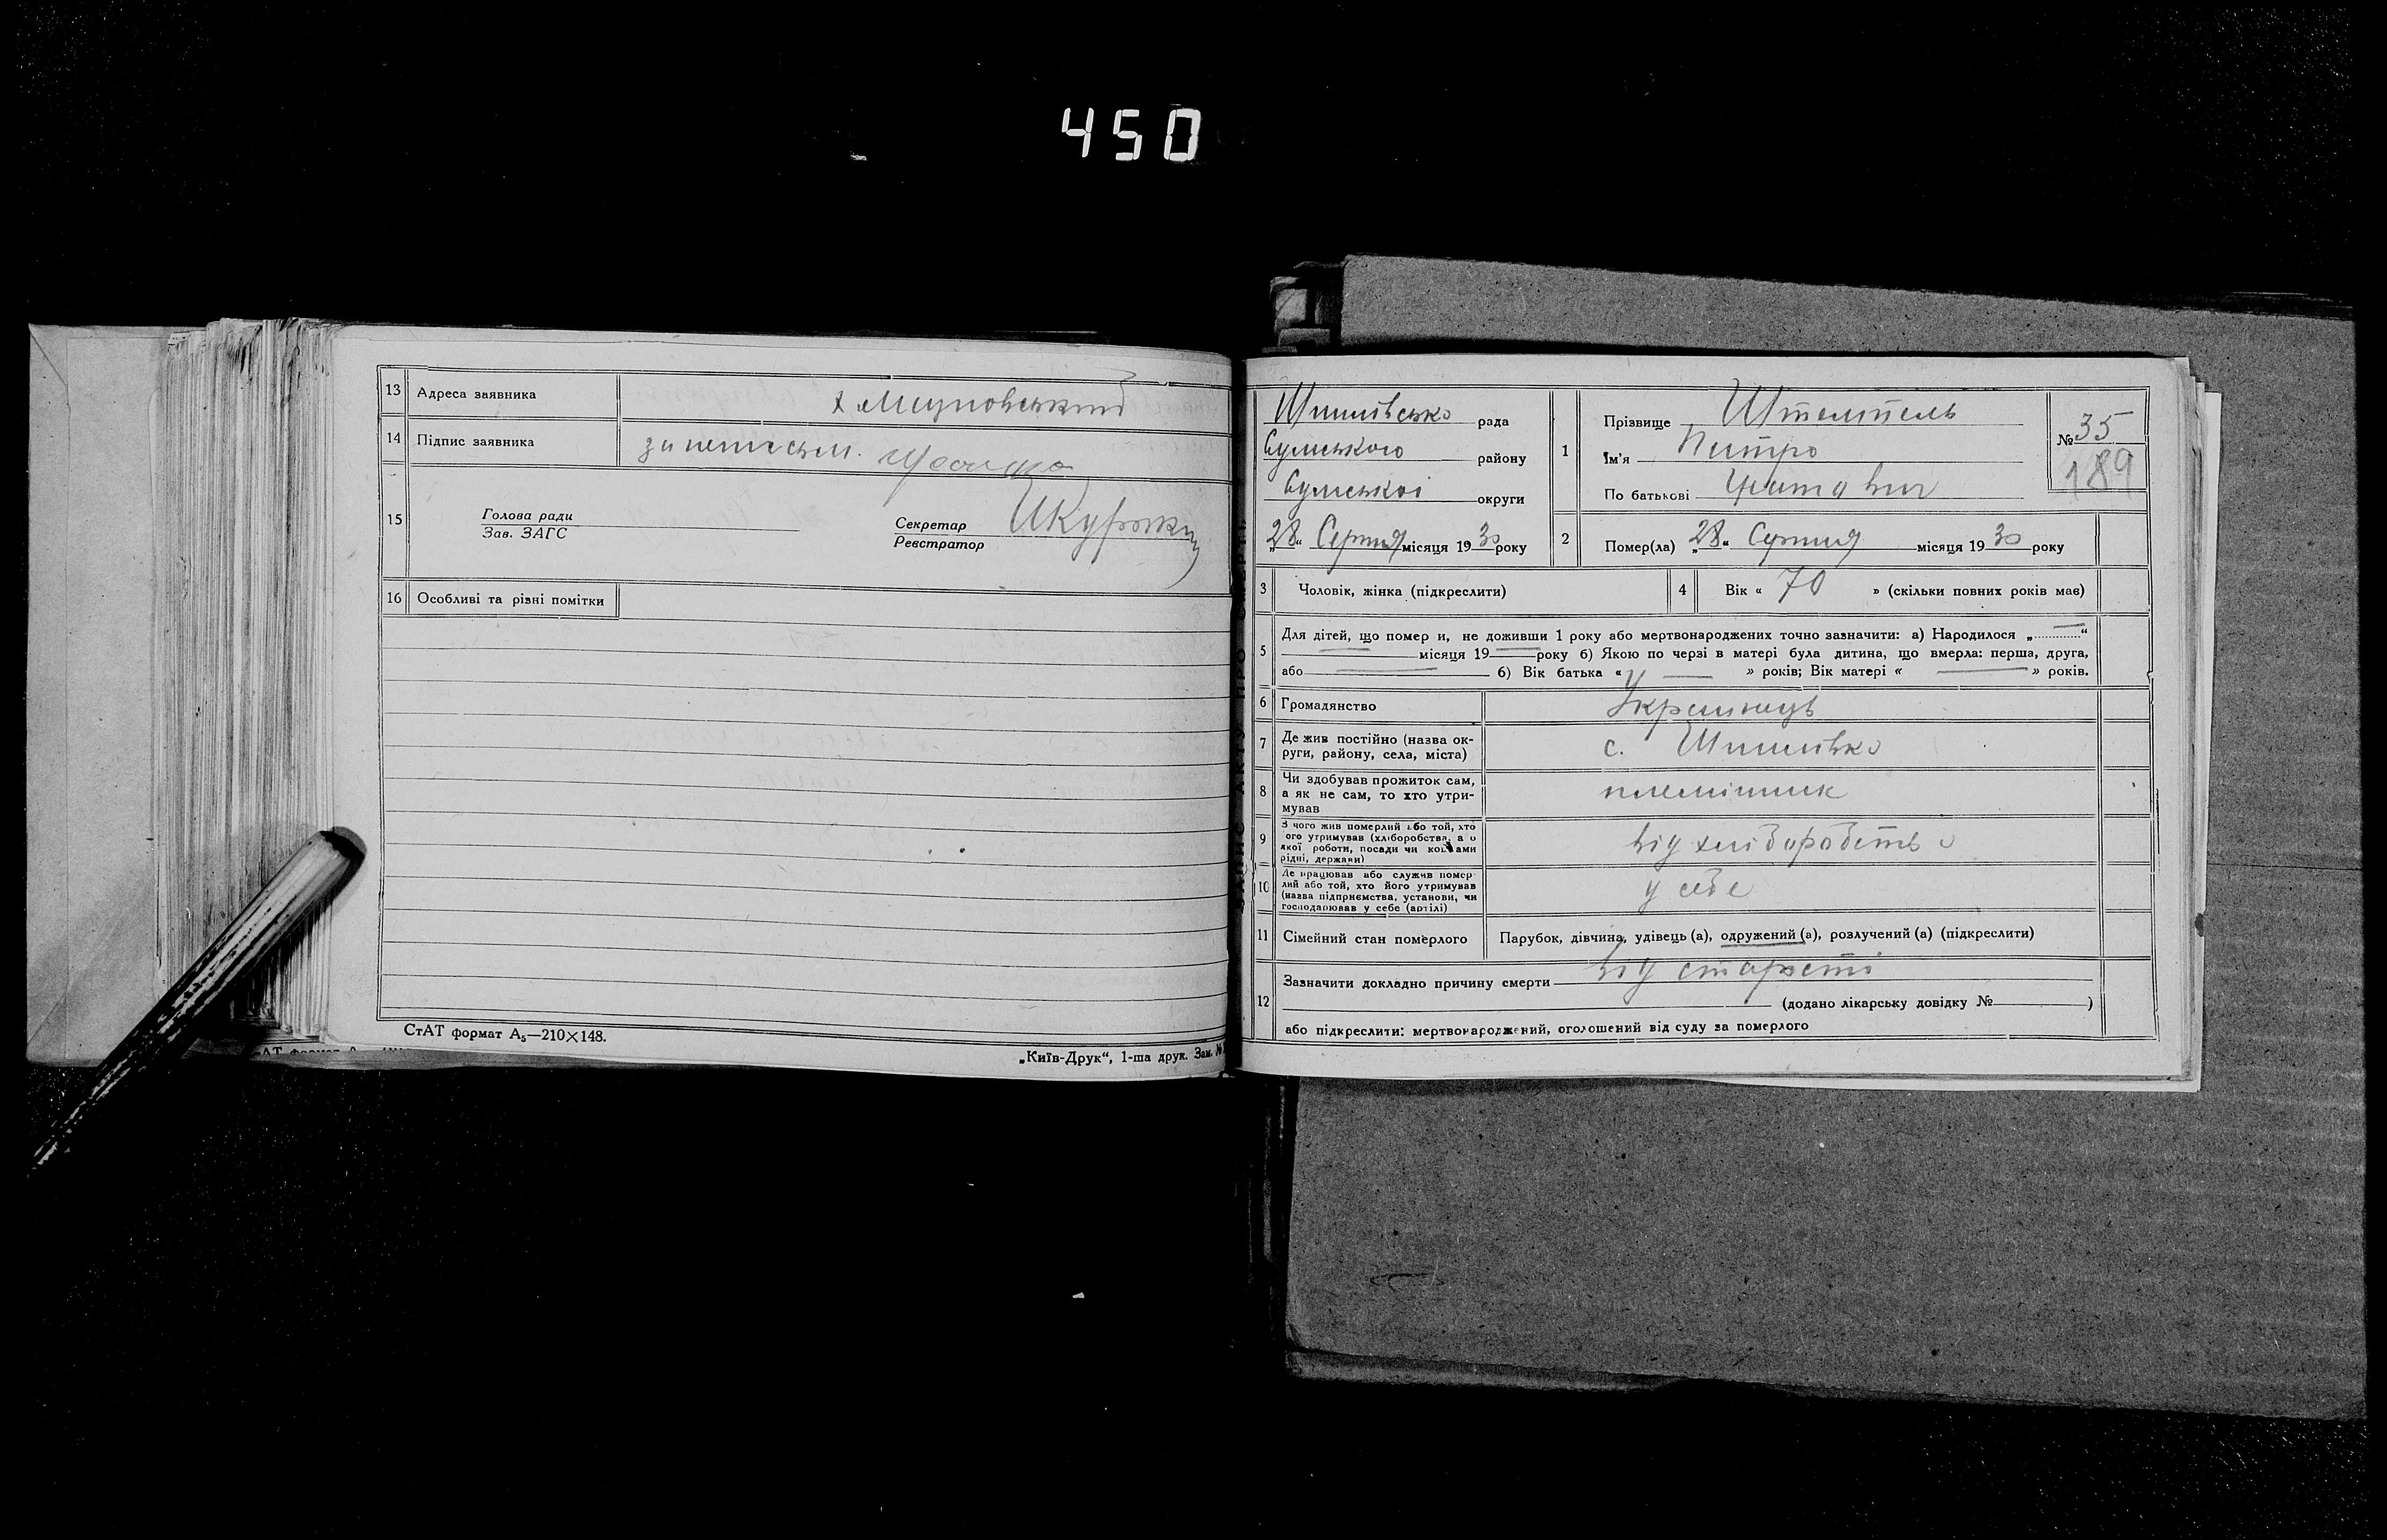 450
13 Адреса заявника
14 Підпис заявника
15 Голова ради
Зав. ЗАГС
Секретар
Реєстратор
16 Особливі та різні помітки
СтАТ формат А₅—210×148.
„Київ-Друк“, 1-ша друк. Зам. №
рада
Сумського району
Сумської округи
„28“ Серпня місяця 1930 року
1 Прізвище
Ім'я Питро
По батькові
№ 35
189
2 Помер(ла) „28“ Серпня місяця 1930 року
3 Чоловік, жінка (підкреслити)
4 Вік « 70 » (скільки повних років має)
5 Для дітей, що помер и, не доживши 1 року або мертвонароджених точно зазначити: а) Народилося „ “
місяця 19 року б) Якою по черзі в матері була дитина, що вмерла: перша, друга,
або б) Вік батька « » років; Вік матері « » років.
6 Громадянство Українець
7 Де жив постійно (назва ок-
руги, району, села, міста) с.
8 Чи здобував прожиток сам,
а як не сам, то хто утри-
мував племінник
9 З чого жив померлий або той, хто
ого утримував (хліборобства, а о
якої роботи, посади чи коштами
рідні, держави) від хліборобства
10 Де працював або служив помер-
лий або той, хто його утримував
(назва підприємства, установи, чи
господарював у себе (артілі) у себе
11 Сімейний стан померлого Парубок, дівчина, удівець (а), одружений (а), розлучений (а) (підкреслити)
12 Зазначити докладно причину смерти від старості
(додано лікарську довідку № )
або підкреслити: мертвонароджений, оголошений від суду за померлого